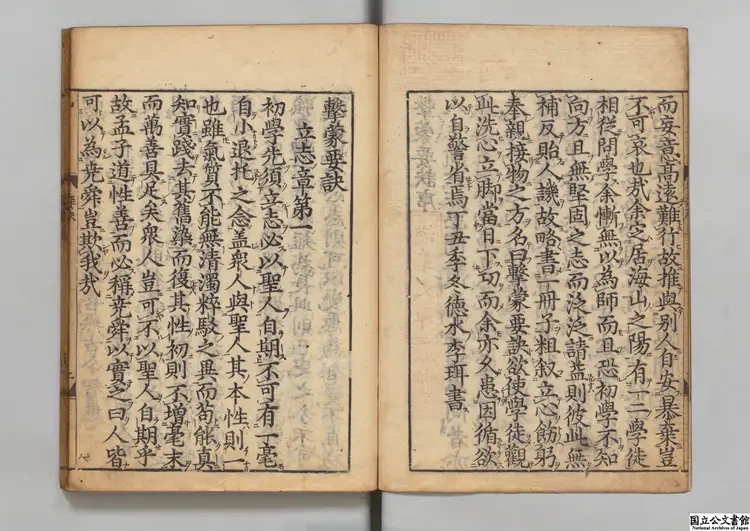 而妄意高遠難行故推與別人自安暴棄豈
不可哀也哉余定居海山之陽有一二學徒
相從問學余慚無以為師而且恐初學不知
向方且無堅固之志而泛泛請益則彼此無
補反貽人譏故略書一冊子粗叙立心飭躬
奉親接物之方名曰擊蒙要訣欲使學徒觀
此洗心立脚當日下功而余亦久患因循欲
以自警省焉丁丑季冬德水李珥書
擊蒙要訣
立志章第一
初學先須立志必以聖人自期不可有一毫
自小退托之念盖衆人與聖人其本性則一
也雖氣質不能無清濁粹駁之異而苟能真
知實踐去其舊染而復其性初則不增毫末
而萬善具足矣衆人豈可不以聖人自期乎
故孟子道性善而必稱堯舜以實之曰人皆
可以為堯舜豈欺我哉
国立公文書館
National Archives of Japan